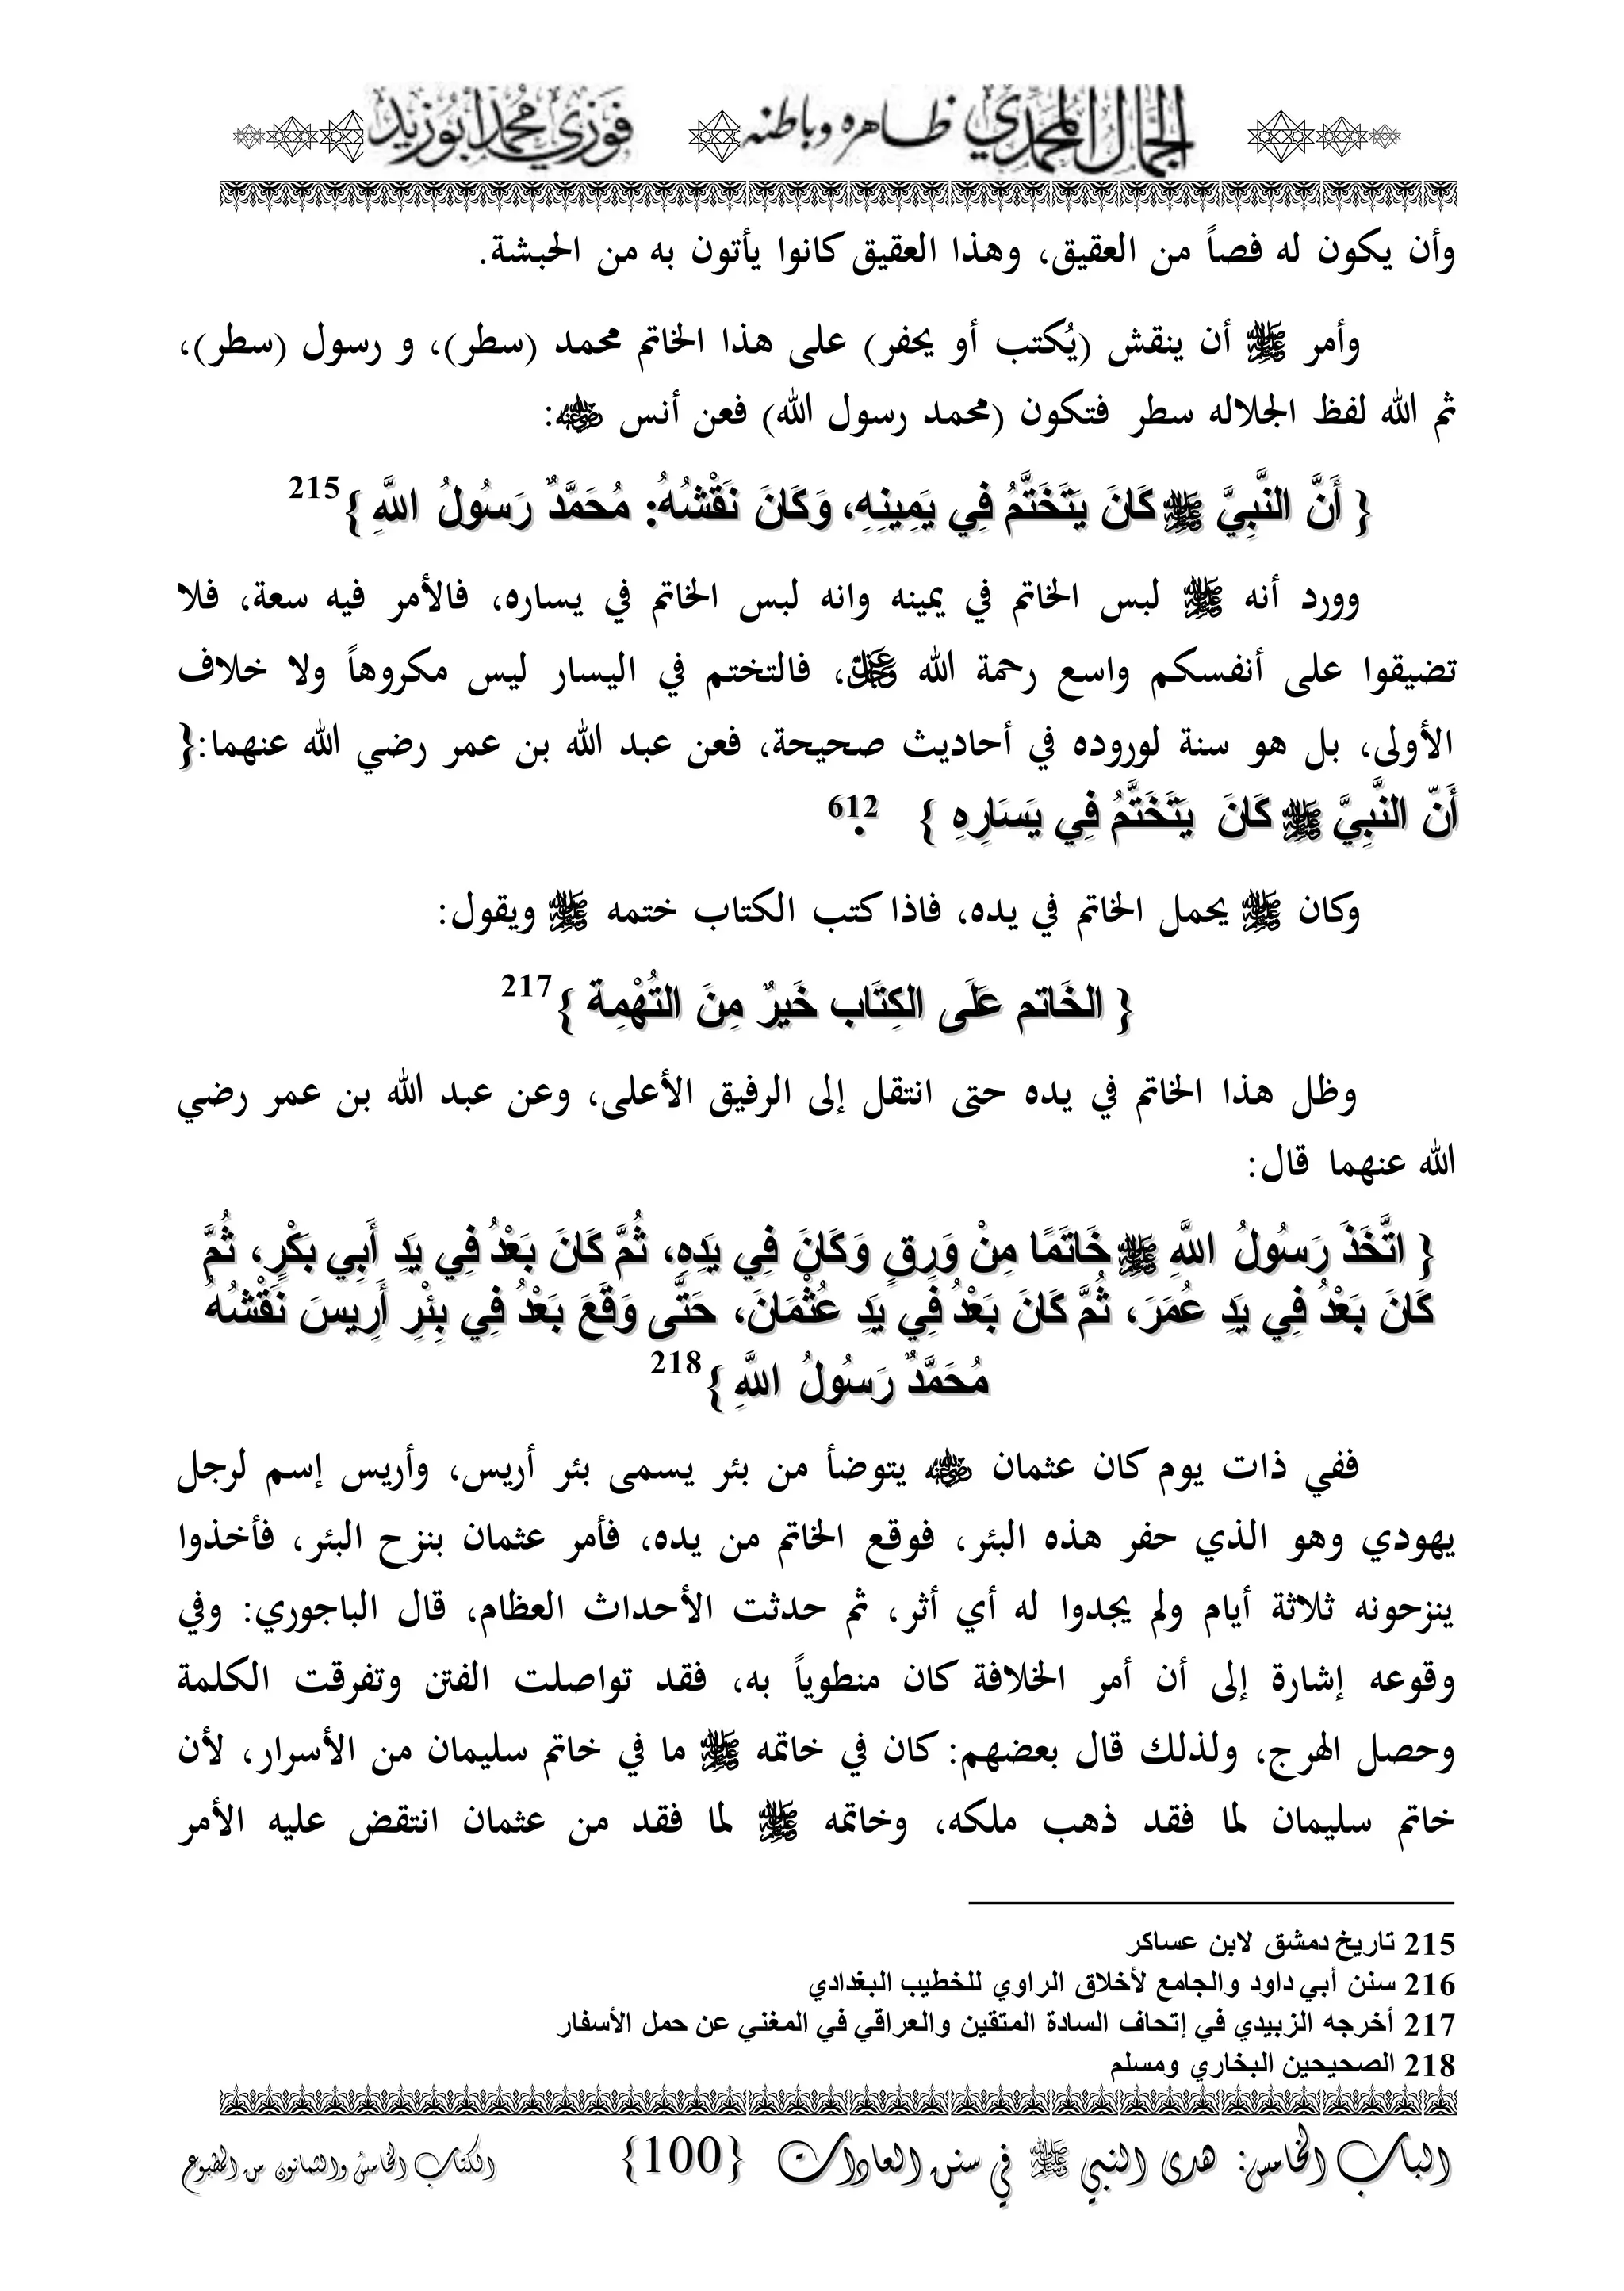 الجمال المحمدي ظاهره وباطنه فوزي محمد أبوزيد
وأن يكون له فصاً من العقيق، وهذا العقيق كانوا يأتون به من الحبشة.
وأمر ﷺ أن ينقش (يُكتب أو يحفر) على هذا الخاتم محمد (سطر)، و رسول (سطر)،
ثم الله لفظ الجلاله سطر فتكون (محمد رسول الله) فعن أنس ﵁:
{ أَنَّ النَّبِيَّ ﷺ كَانَ يَتَخَتَّمُ فِي يَمِينِهِ، وَكَانَ نَقْشُهُ: مُحَمَّدٌ رَسُولُ اللَّهِ }215
وورد أنه ﷺ لبس الخاتم في يمينه وانه لبس الخاتم في يساره، فالأمر فيه سعة، فلا
تضيقوا على أنفسكم واسع رحمة الله ﷿، فالتختم في اليسار ليس مكروهاً ولا خلاف
الأولى، بل هو سنة لوروده في أحاديث صحيحة، فعن عبد الله بن عمر رضي الله عنهما:{
أَنّ النَّبِيَّ ﷺ كَانَ يَتَخَتَّمُ فِي يَسَارِهِ } 612.
وكان ﷺ يحمل الخاتم في يده، فاذا كتب الكتاب ختمه ﷺ ويقول:
{ الخَاتم عَلَى الكِتَاب خَيرٌ مِنَ التُهْمِة }217
وظل هذا الخاتم في يده حتى انتقل إلى الرفيق الأعلى، وعن عبد الله بن عمر رضي
الله عنهما قال:
{ اتَّخَذَ رَسُولُ اللَّهِ ﷺ خَاتَمًا مِنْ وَرِقٍ وَكَانَ فِي يَدِهِ، ثُمَّ كَانَ بَعْدُ فِي يَدِ أَبِي بَكْرٍ، ثُمَّ
كَانَ بَعْدُ فِي يَدِ عُمَرَ، ثُمَّ كَانَ بَعْدُ فِي يَدِ عُثْمَانَ، حَتَّى وَقَعَ بَعْدُ فِي بِئْرِ أَرِيسَ نَقْشُهُ
مُحَمَّدٌ رَسُولُ اللَّهِ }218
ففي ذات يوم كان عثمان ﵁ يتوضأ من بئر يسمى بئر أريس، وأريس إسم لرجل
يهودي وهو الذي حفر هذه البئر، فوقع الخاتم من يده، فأمر عثمان بنزح البئر، فأخذوا
ينزحونه ثلاثة أيام ولم يجدوا له أي أثر، ثم حدثت الأحداث العظام، قال الباجوري: وفي
وقوعه إشارة إلى أن أمر الخلافة كان منطوياً به، فقد تواصلت الفتن وتفرقت الكلمة
وحصل الهرج، ولذلك قال بعضهم: كان في خاتمه ﷺ ما في خاتم سليمان من الأسرار، لأن
خاتم سليمان لما فقد ذهب ملكه، وخاتمه ﷺ لما فقد من عثمان انتقض عليه الأمر
215 تاريخ دمشق لابن عساكر
216 سنن أبي داود والجامع لأخلاق الراوي للخطيب البغدادي
217 أخرجه الزبيدي في إتحاف السادة المتقين والعراقي في المغني عن حمل الأسفار
218 الصحيحين البخاري ومسلم
الباب الخامس: هدى النبي ﷺ في سنن العادات {100} الكتاب الخامسُ والثمانون من المطبوع